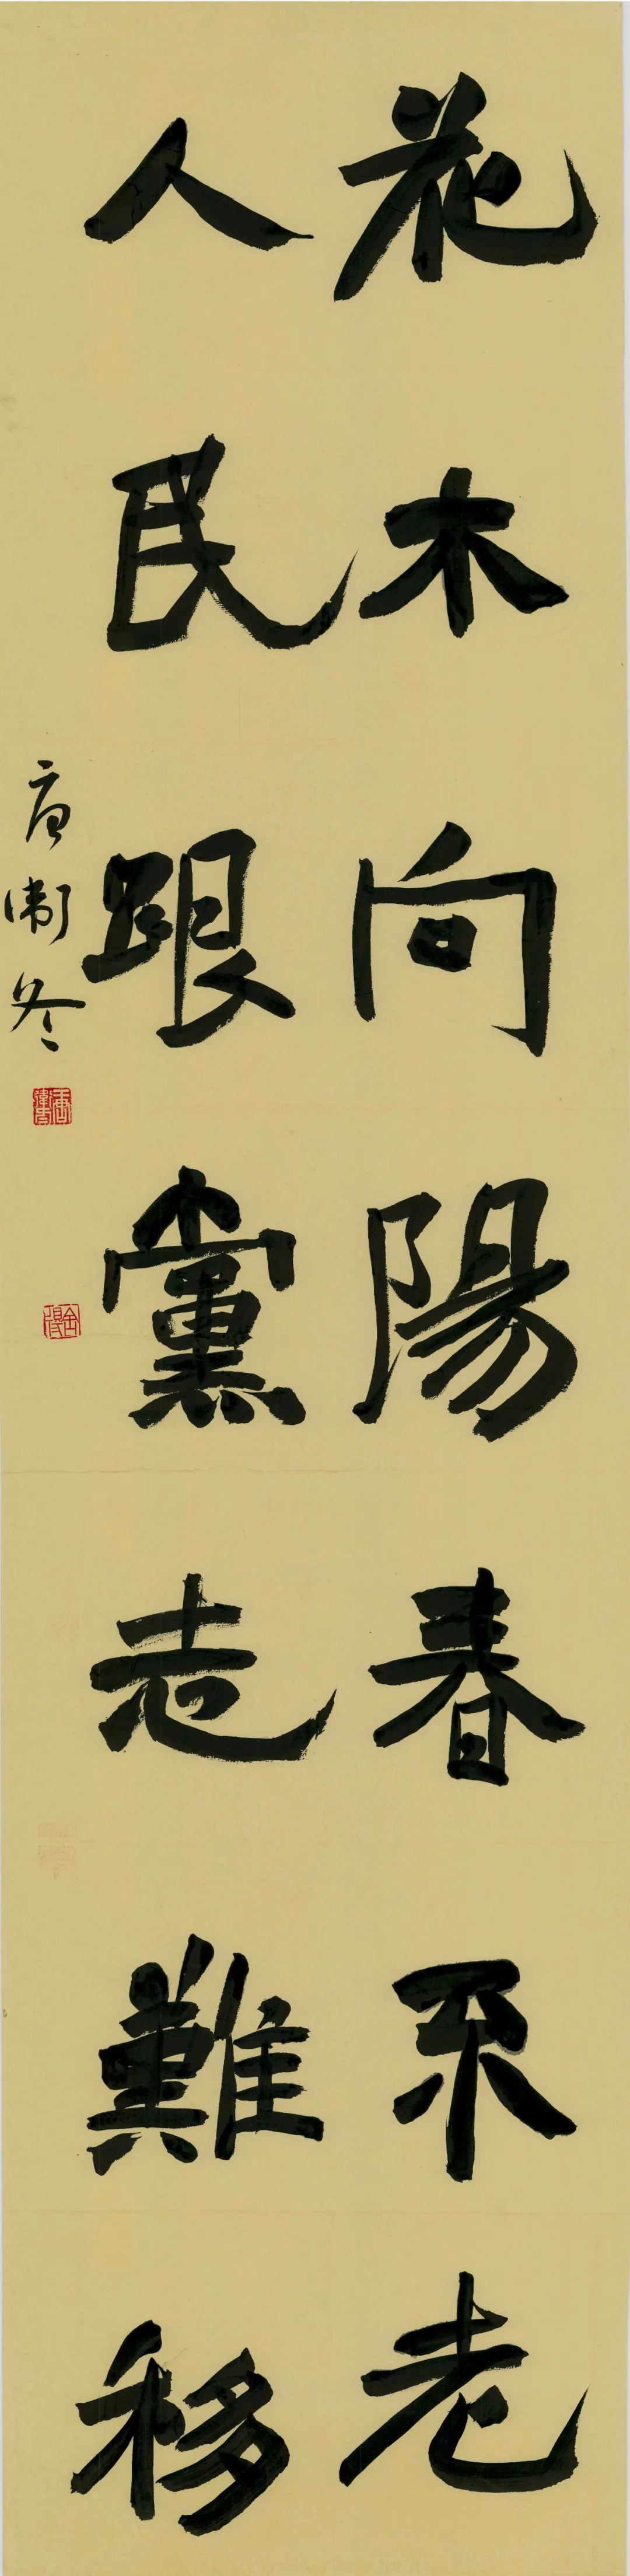 花木向陽春不老
人民跟黨走難移
唐衛冬